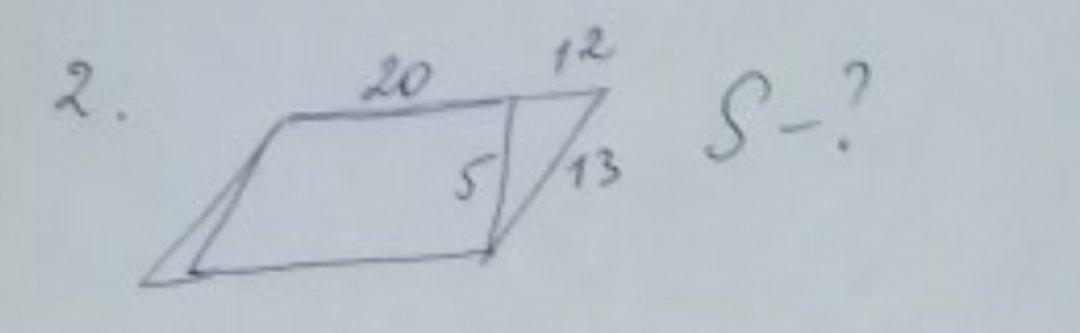 2.
20 12
5 13
S-?